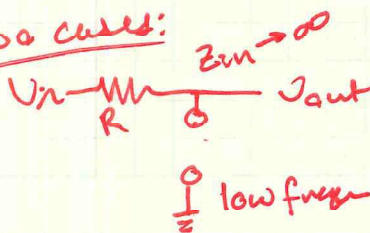 cases:
Zin → ∞
Vin
Vout
R
low freq